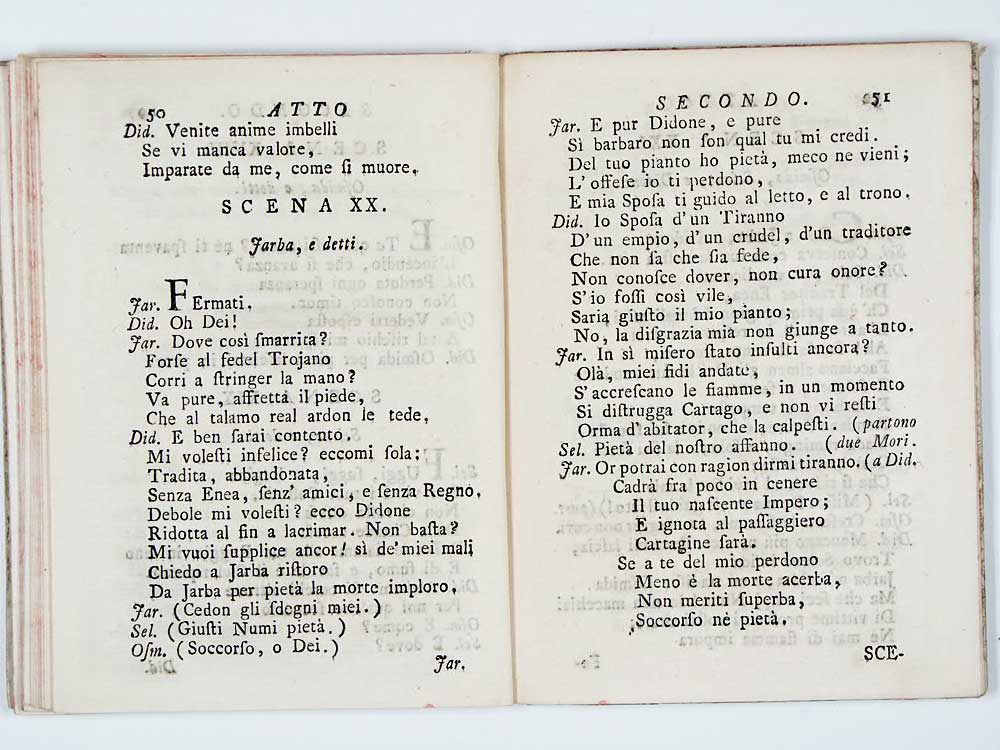 50 ATTO
Did. Venite anime imbelli
Se vi manca valore,
Imparate da me, come ſi muore.
SCENA XX.
Jarba, e detti.
Jar. FErmati.
Did. Oh Dei!
Jar. Dove così ſmarrita?
Forſe al fedel Trojano
Corri a ſtringer la mano?
Va pure, affretta il piede,
Che al talamo real ardon le tede.
Did. E ben ſarai contento.
Mi voleſti infelice? eccomi ſola;
Tradita, abbandonata,
Senza Enea, ſenz' amici, e ſenza Regno.
Debole mi voleſti? ecco Didone
Ridotta al fin a lacrimar. Non baſta?
Mi vuoi ſupplice ancor! sì de' miei mali
Chiedo a Jarba riſtoro
Da Jarba per pietà la morte imploro.
Jar. (Cedon gli ſdegni miei.)
Sel. (Giuſti Numi pietà.)
Oſm. (Soccorſo, o Dei.)
Jar.
SECONDO. 51
Jar. E pur Didone, e pure
Sì barbaro non ſon qual tu mi credi.
Del tuo pianto ho pietà, meco ne vieni;
L' offeſe io ti perdono,
E mia Spoſa ti guido al letto, e al trono.
Did. Io Spoſa d'un Tiranno
D'un empio, d'un crudel, d'un traditore
Che non ſa che ſia fede,
Non conoſce dover, non cura onore?
S'io foſſi così vile,
Saria giuſto il mio pianto;
No, la diſgrazia mia non giunge a tanto.
Jar. In sì miſero ſtato inſulti ancora?
Olà, miei fidi andate,
S'accreſcano le fiamme, in un momento
Si diſtrugga Cartago, e non vi reſti
Orma d'abitator, che la calpeſti. (partono
Sel. Pietà del noſtro affanno. (due Mori.
Jar. Or potrai con ragion dirmi tiranno. (a Did.
Cadrà fra poco in cenere
Il tuo naſcente Impero;
E ignota al paſſaggiero
Cartagine ſarà.
Se a te del mio perdono
Meno è la morte acerba,
Non meriti ſuperba,
Soccorſo nè pietà.
SCE-